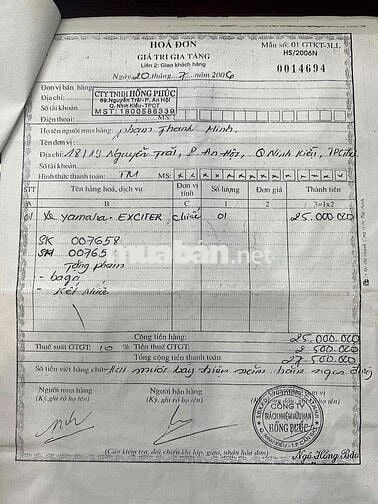 HOÁ ĐƠN
GIÁ TRỊ GIA TĂNG
Liên 2: Giao khách hàng
Ngày 20 tháng 7 năm 2006
Mẫu số: 01 GTKT-3LL
HS/2006N
0014694
Đơn vị bán hàng:
CTY TNHH HỒNG PHÚC
Địa chỉ: 69.Nguyễn Trãi-P. An Hội
Số tài khoản: Q. Ninh Kiều-TPCT
Điện thoại: MST: 1800586339
MS:
Họ tên người mua hàng: Phạm Thanh Minh
Tên đơn vị:
Địa chỉ: 18/19 Nguyễn Trãi, P. An Hội, Q Ninh Kiều, TPCT
Số tài khoản:
Hình thức thanh toán: TM MS: x x x x x x x x x x
STT Tên hàng hoá, dịch vụ Đơn vị tính Số lượng Đơn giá Thành tiền
A B C 1 2 3=1x2
01 Xe yamaha - EXCITER chiếc 01 25.000.000
SK 007658
SM 00765
Tặng phẩm
- baga
muaban.net
Cộng tiền hàng: 25.000.000
Thuế suất GTGT: 10 % Tiền thuế GTGT: 2 500.000
Tổng cộng tiền thanh toán 27.500.000
Số tiền viết bằng chữ: Hai mươi bảy triệu năm trăm ngàn đồng
Người mua hàng
(Ký, ghi rõ họ tên)
Người bán hàng
(Ký, ghi rõ họ tên)
CÔNG TY
TRÁCH NHIỆM HỮU HẠN
HỒNG PHÚC
Ngô Hồng Đào
(Cần kiểm tra, đối chiếu khi lập, giao, nhận hóa đơn)